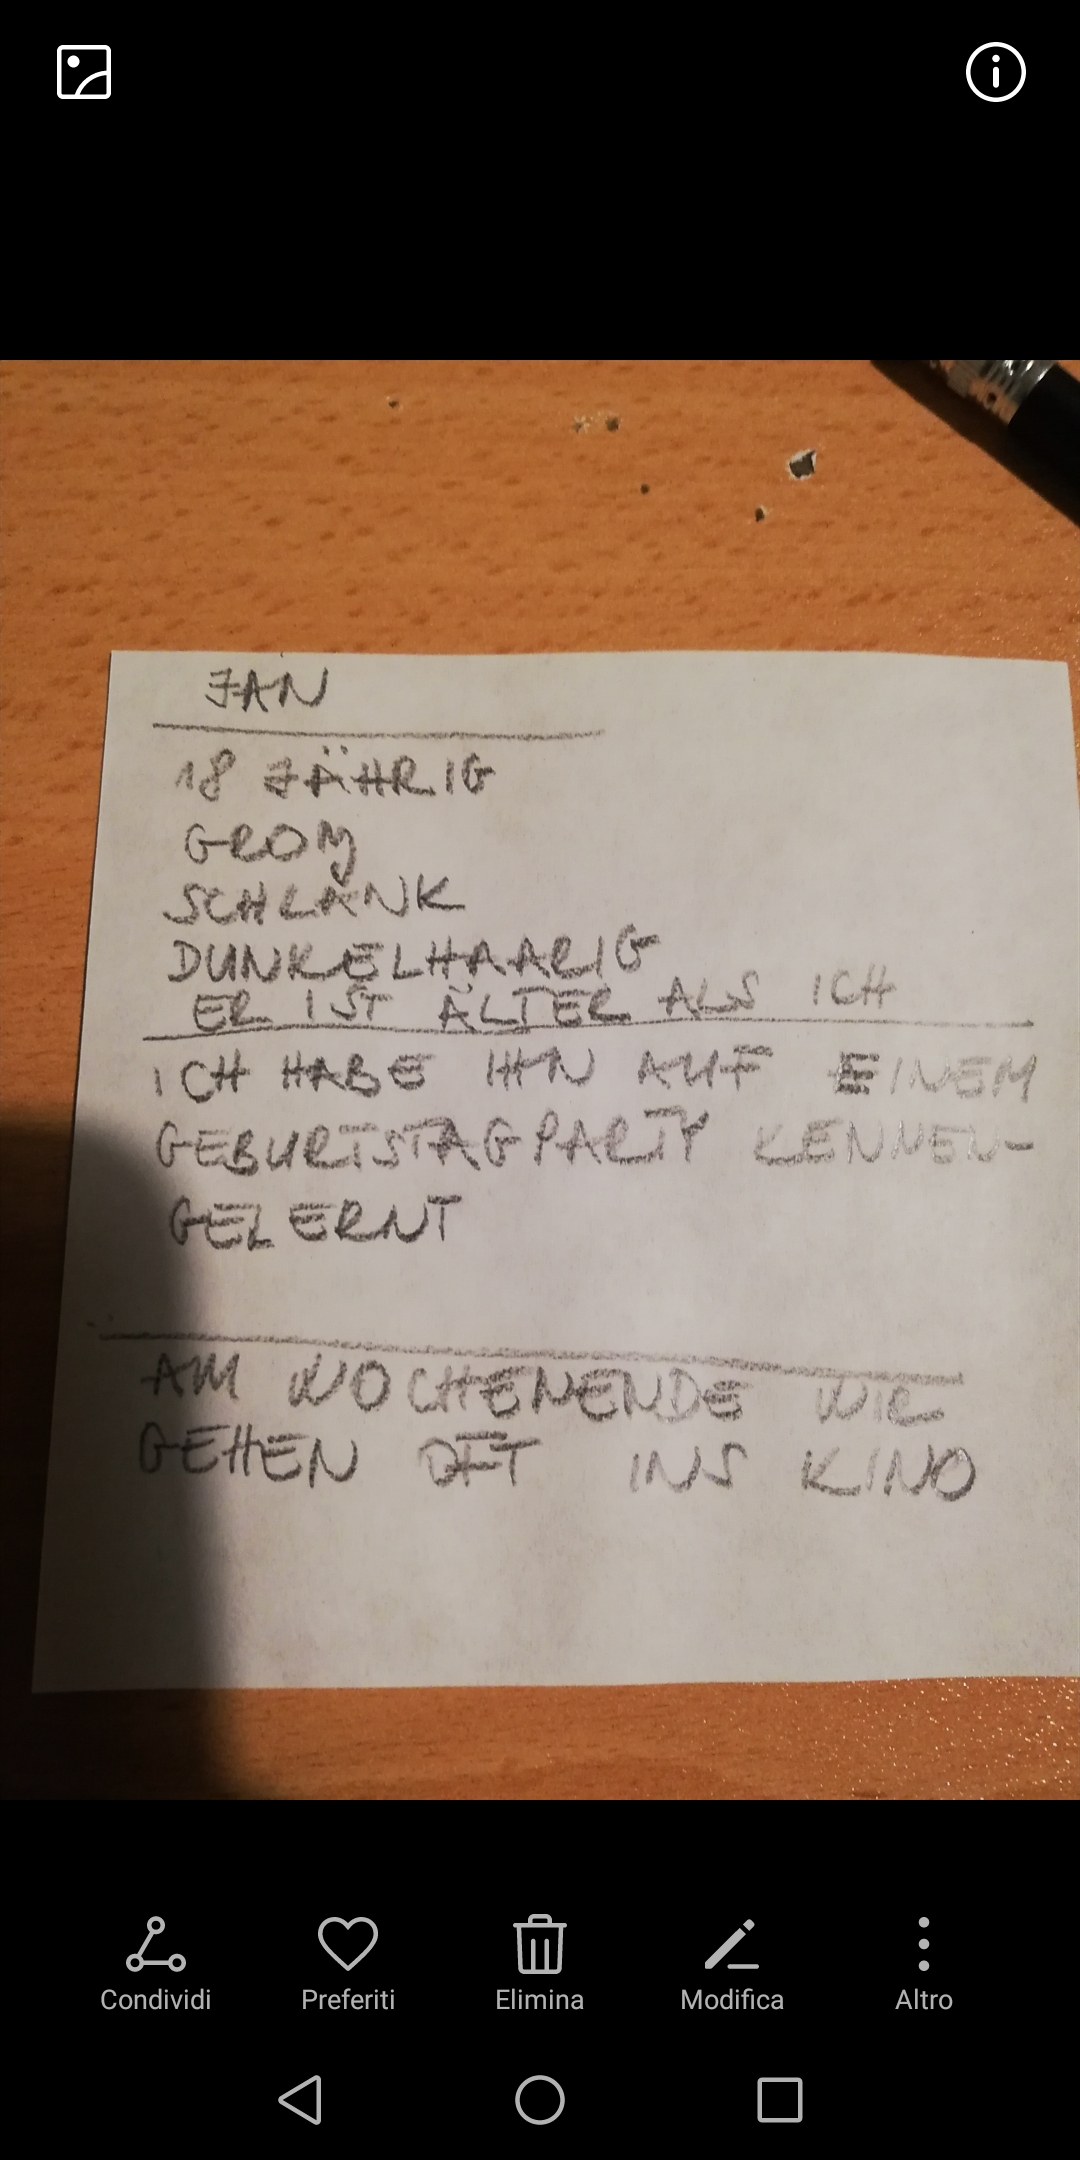 JAN
18 JÄHRIG
GROß
SCHLANK
DUNKELHAARIG
ER IST ÄLTER ALS ICH
ICH HABE IHN AUF EINEM
GEBURTSTAGPARTY KENNEN-
GELERNT
AM WOCHENENDE WIR
GEHEN OFT INS KINO
Condividi Preferiti Elimina Modifica Altro